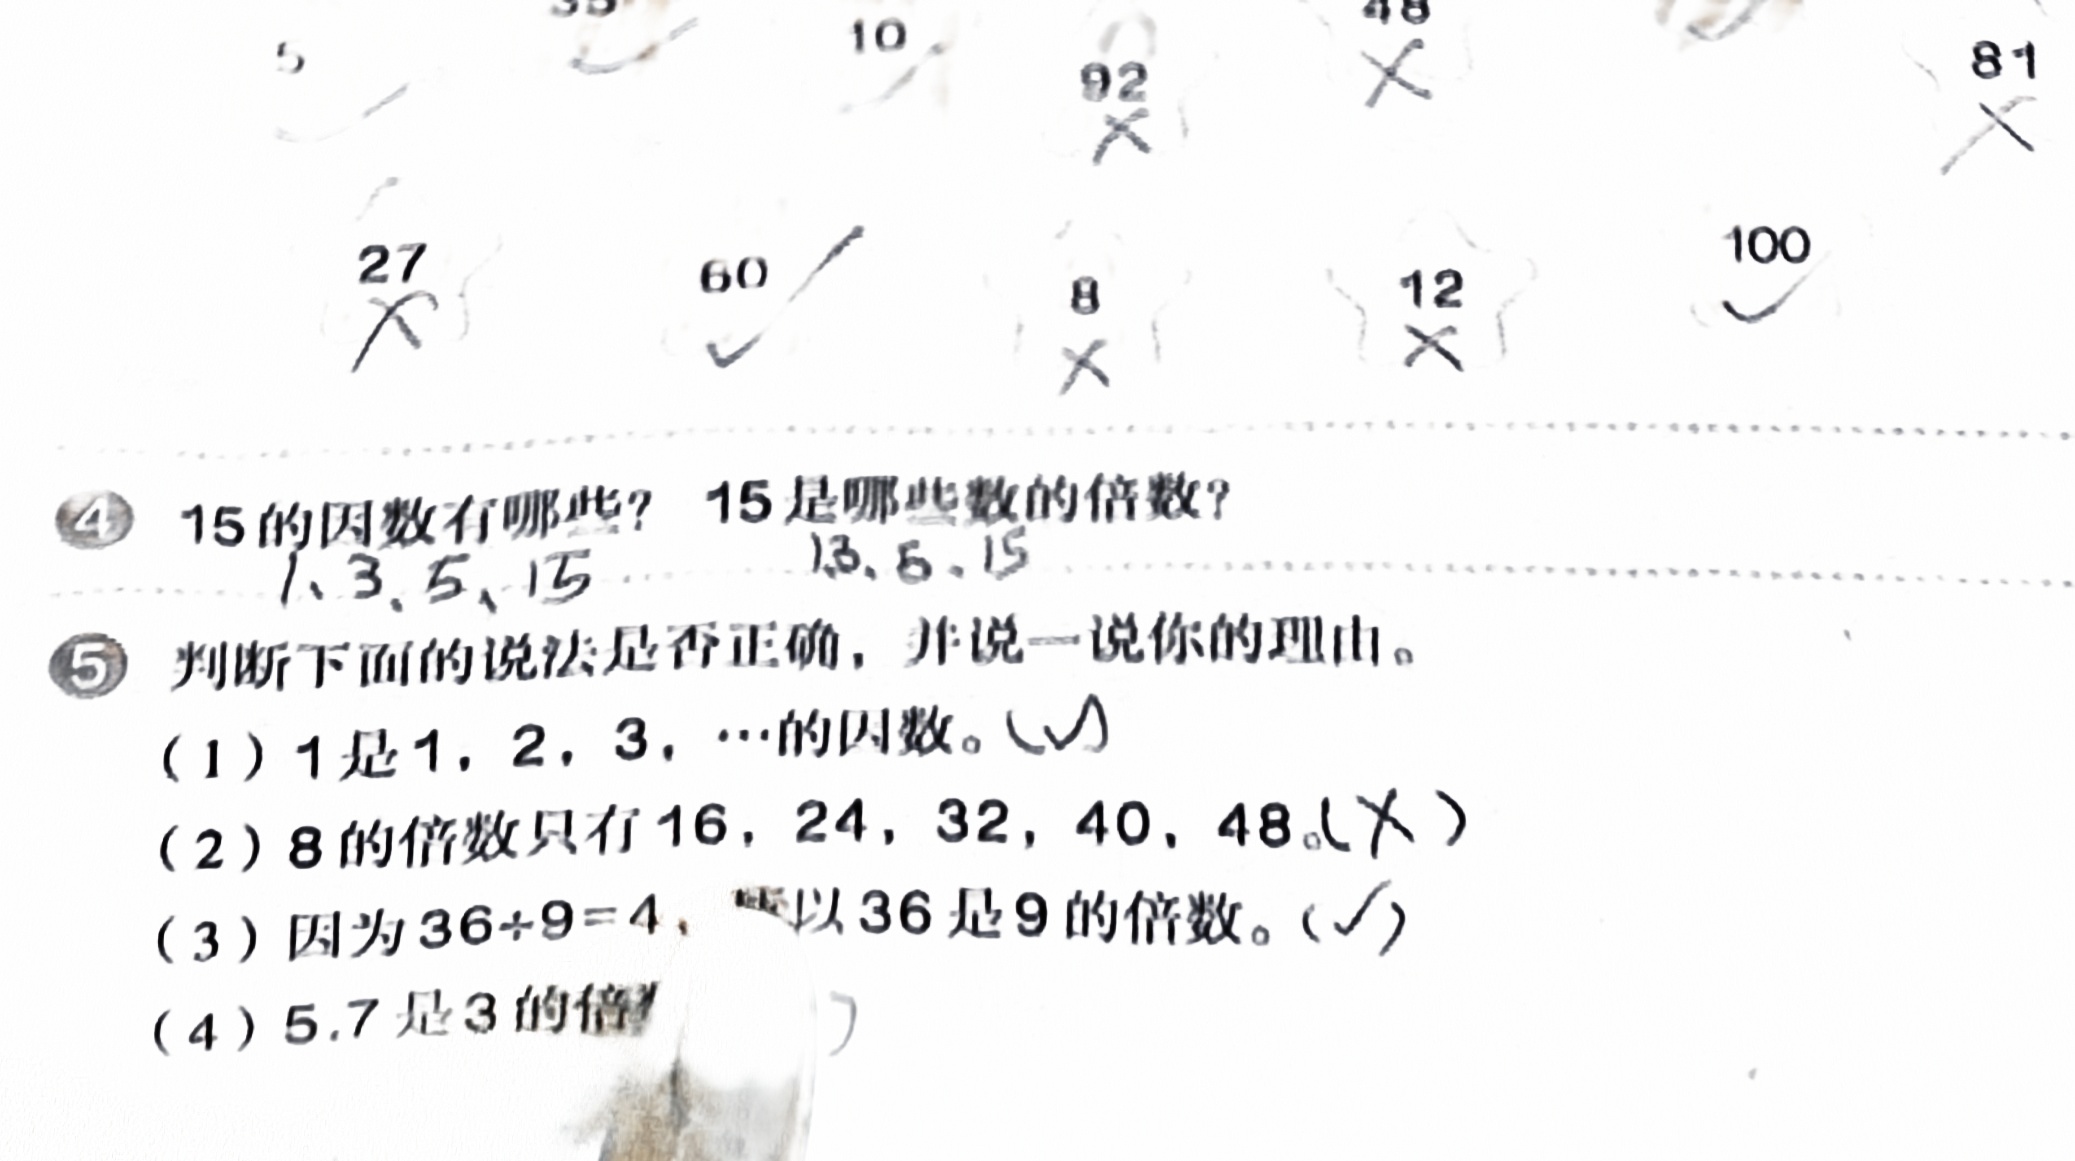 35 48
5 10 92 81
27 60 8 12 100
4 15的因数有哪些? 15是哪些数的倍数?
1、3、5、15 1、3、5、15
5 判断下面的说法是否正确，并说一说你的理由。
(1) 1是1，2，3，…的因数。(√)
(2) 8的倍数只有16，24，32，40，48。(×)
(3) 因为36÷9=4，所以36是9的倍数。(√)
(4) 5.7是3的倍 )